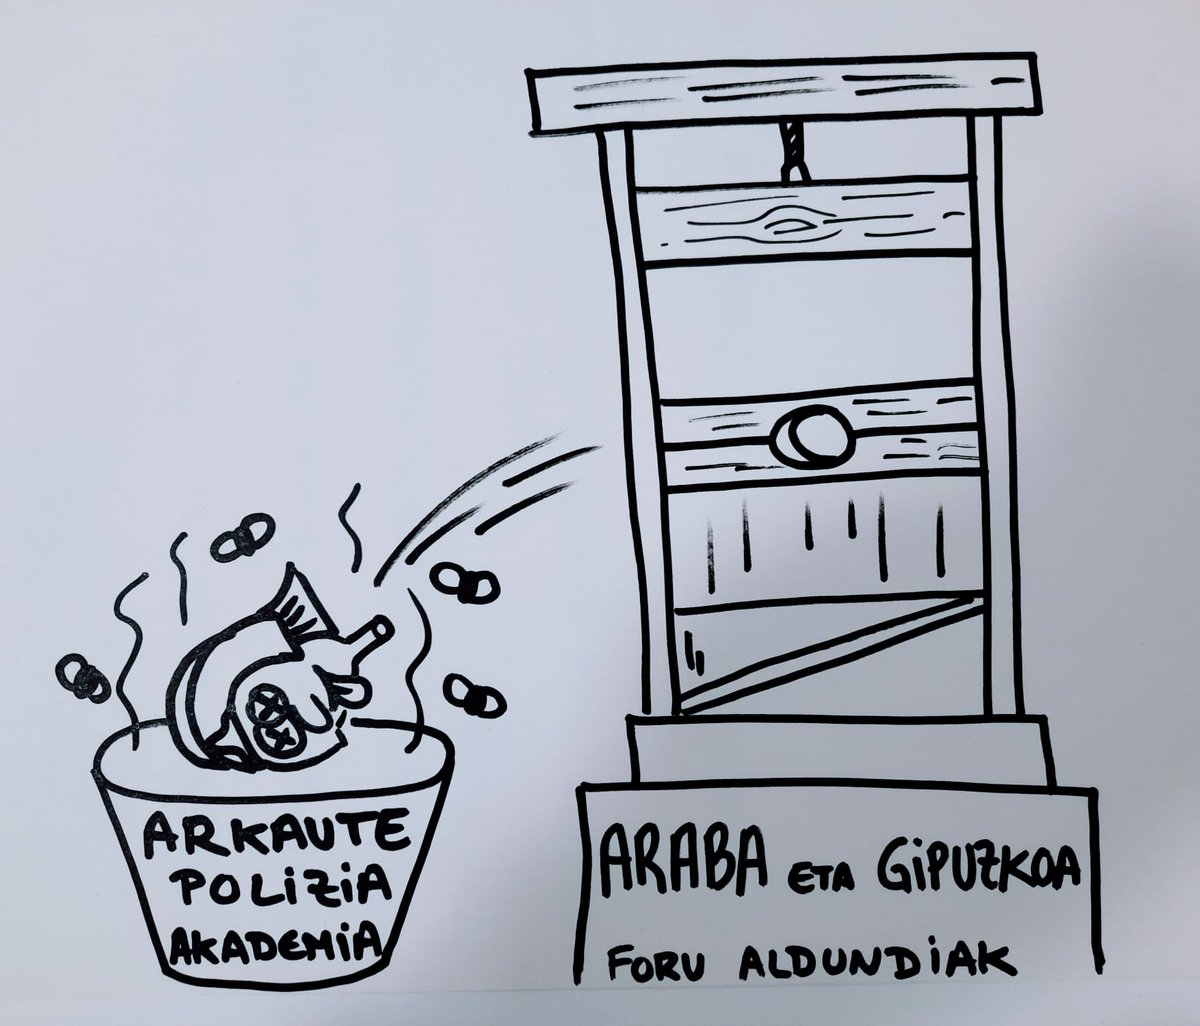 ARKAUTE
POLIZIA
AKADEMIA
ARABA ETA GIPUZKOA
FORU ALDUNDIAK